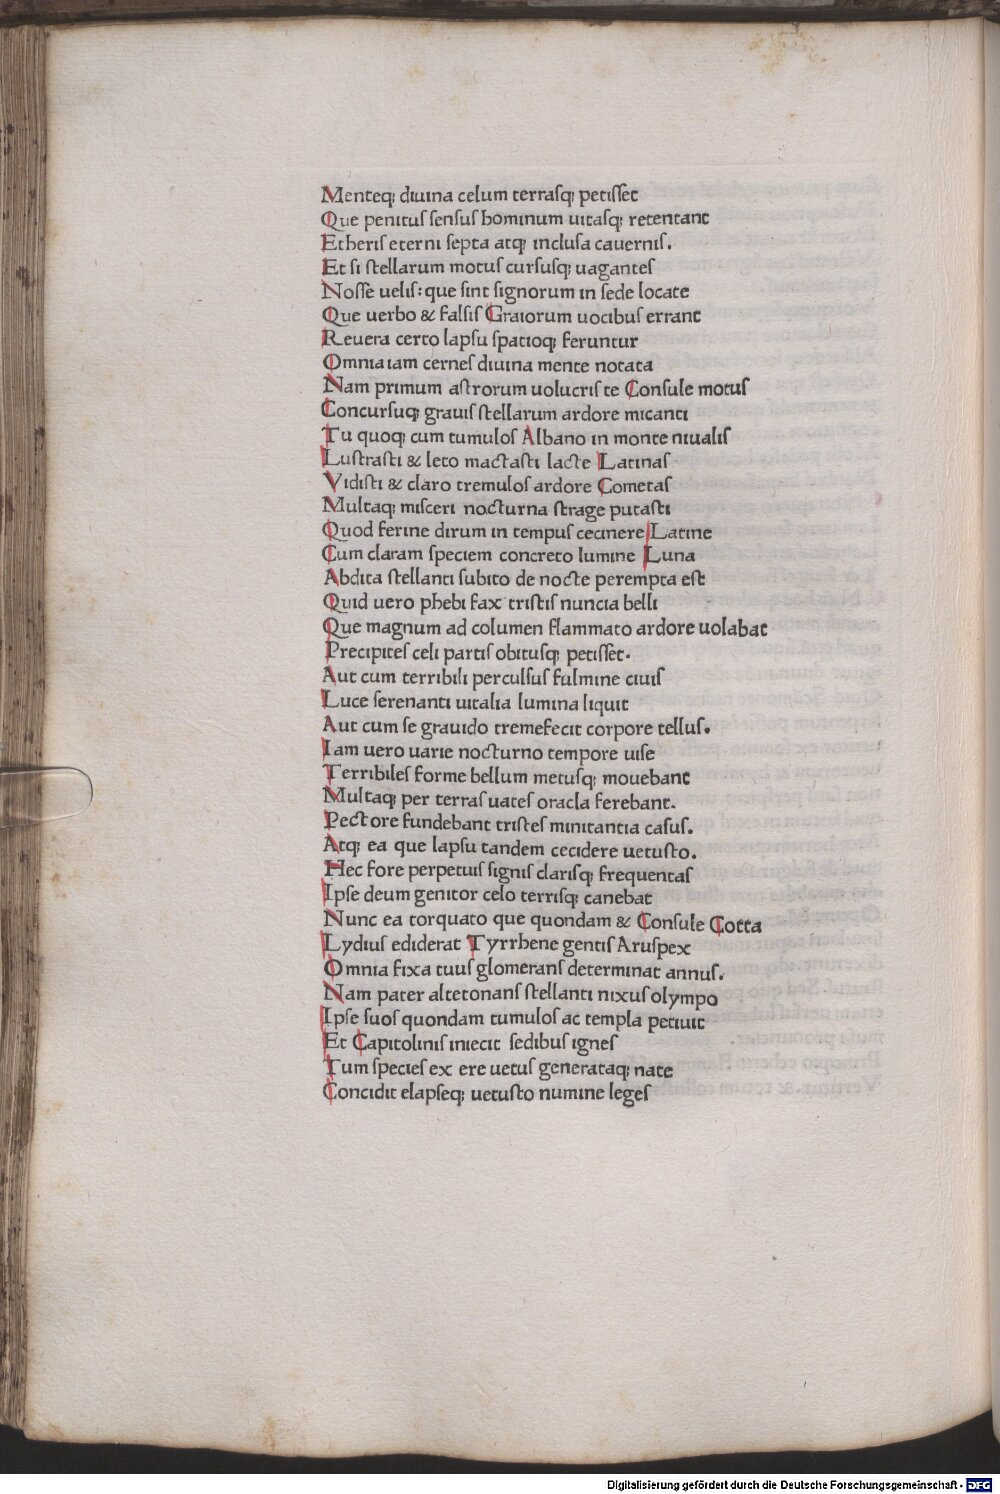 Menteq; diuina celum terrasq; petisset
Que penitus sensus hominum uitasq; retentant
Etheris eterni septa atq; inclusa cauernis.
Et si stellarum motus cursusq; uagantes
Nosse uelis: que sint signorum in sede locate
Que uerbo & falsis Graiorum uocibus errant
Reuera certo lapsu spatioq; feruntur
Omnia iam cernes diuina mente notata
Nam primum astrorum uolucris te Consule motus
Concursuq; grauis stellarum ardore micanti
Tu quoq; cum tumulos Albano in monte niualis
Lustrasti & leto mactasti lacte Latinas
Vidisti & claro tremulos ardore Cometas
Multaq; misceri nocturna strage putasti
Quod ferme dirum in tempus cecinere Latine
Cum claram speciem concreto lumine Luna
Abdita stellanti subito de nocte perempta est
Quid uero phebi fax tristis nuncia belli
Que magnum ad columen flammato ardore uolabat
Precipites celi partis obitusq; petisset.
Aut cum terribili perculsus fulmine ciuis
Luce serenanti uitalia lumina liquit
Aut cum se grauido tremefecit corpore tellus.
Iam uero uarie nocturno tempore uise
Terribiles forme bellum metusq; mouebant
Multaq; per terras uates oracla ferebant.
Pectore fundebant tristes minitantia casus.
Atq; ea que lapsu tandem cecidere uetusto.
Hec fore perpetuis signis clarisq; frequentas
Ipse deum genitor celo terrisq; canebat
Nunc ea torquato que quondam & Consule Cotta
Lydius ediderat Tyrrhene gentis Aruspex
Omnia fixa tuus glomerans determinat annus.
Nam pater altetonans stellanti nixus olympo
Ipse suos quondam tumulos ac templa petiuit
Et Capitolinis iniecit sedibus ignes
Tum species ex ere uetus generataq; nate
Concidit elapseq; uetusto numine leges
Digitalisierung gefördert durch die Deutsche Forschungsgemeinschaft - DFG